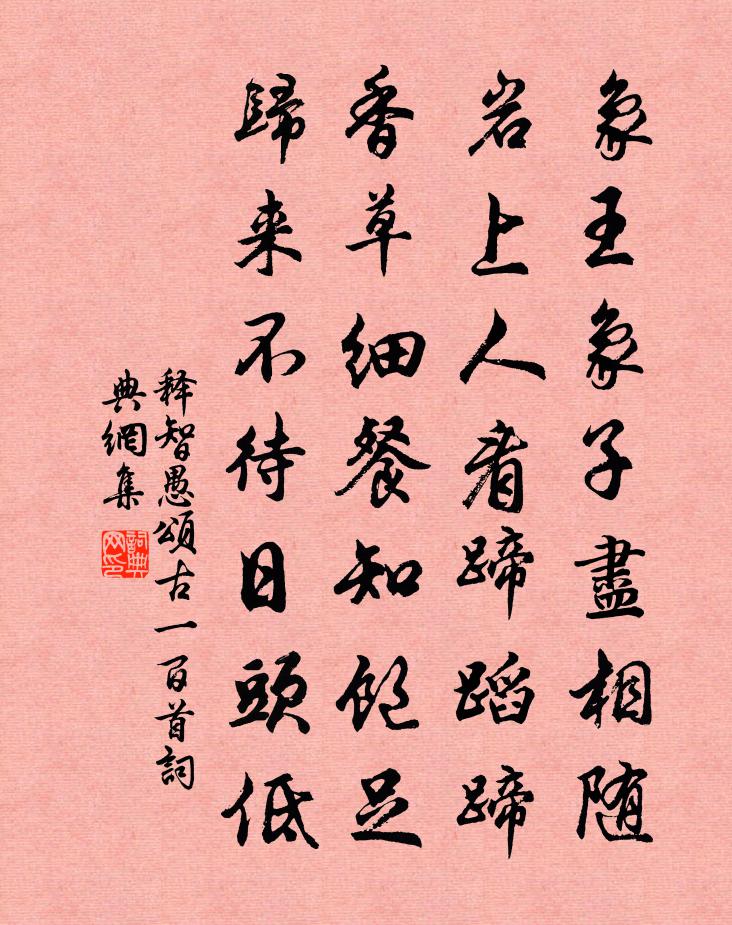 象王象子盡相随
岩上人看蹄蹈蹄
香草细餐知飽足
歸来不待日頭低
释智愚頌古一百首詞
典網集
詞典
网印